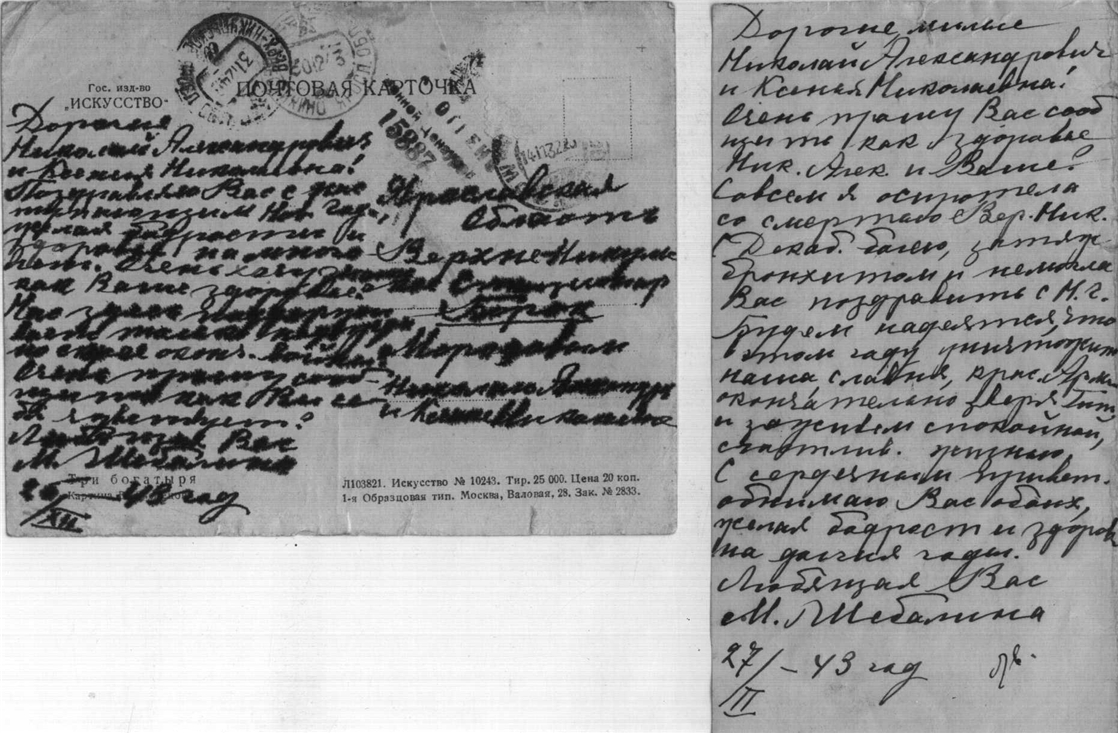 Гос. изд-во
„ИСКУССТВО"
ПОЧТОВАЯ КАРТОЧКА
15887
Дорогие
Николай Александрович
и Ксения Николаевна!
Поздравляю Вас с
Нов. год.,
желая бодрости и
здоровья на много
лет. Очень хочу
как Ваше здоровье?
Нас здесь
по скорее оконч. войны.
Очень прошу сооб-
щить как Вы се-
бя чувствуете?
Любящая Вас
М. Шебалина
26/XII - 43 год
Ярославская
область
Верхне Никул
Борок
Морозовым
Николаю Александр
и Ксении Николаевне
Три богатыря
Картина
Л103821. Искусство № 10243. Тир. 25 000. Цена 20 коп.
1-я Образцовая тип. Москва, Валовая, 28. Зак. № 2833.
Дорогие, милые
Николай Александрович
и Ксенья Николаевна!
Очень прошу Вас сооб
щить как здоровье
Ник. Алек. и Ваше?
Совсем я осиротела
со смертью Вер. Ник.
С Декаб. болею, затяж
бронхитом и немогла
Вас поздравить с Н. Г.
Будем надеятся, что
в этом году уничтожит
наша, славня, крас. Арм.
окончательно зверя Гит.
и заживем спокойной,
счастлив. жизнью
С сердечным привет.
обнимаю Вас обоих,
желая бодрост и здоров
на долгия годы.
Любящая Вас
М. Шебалина
27/II - 43 год